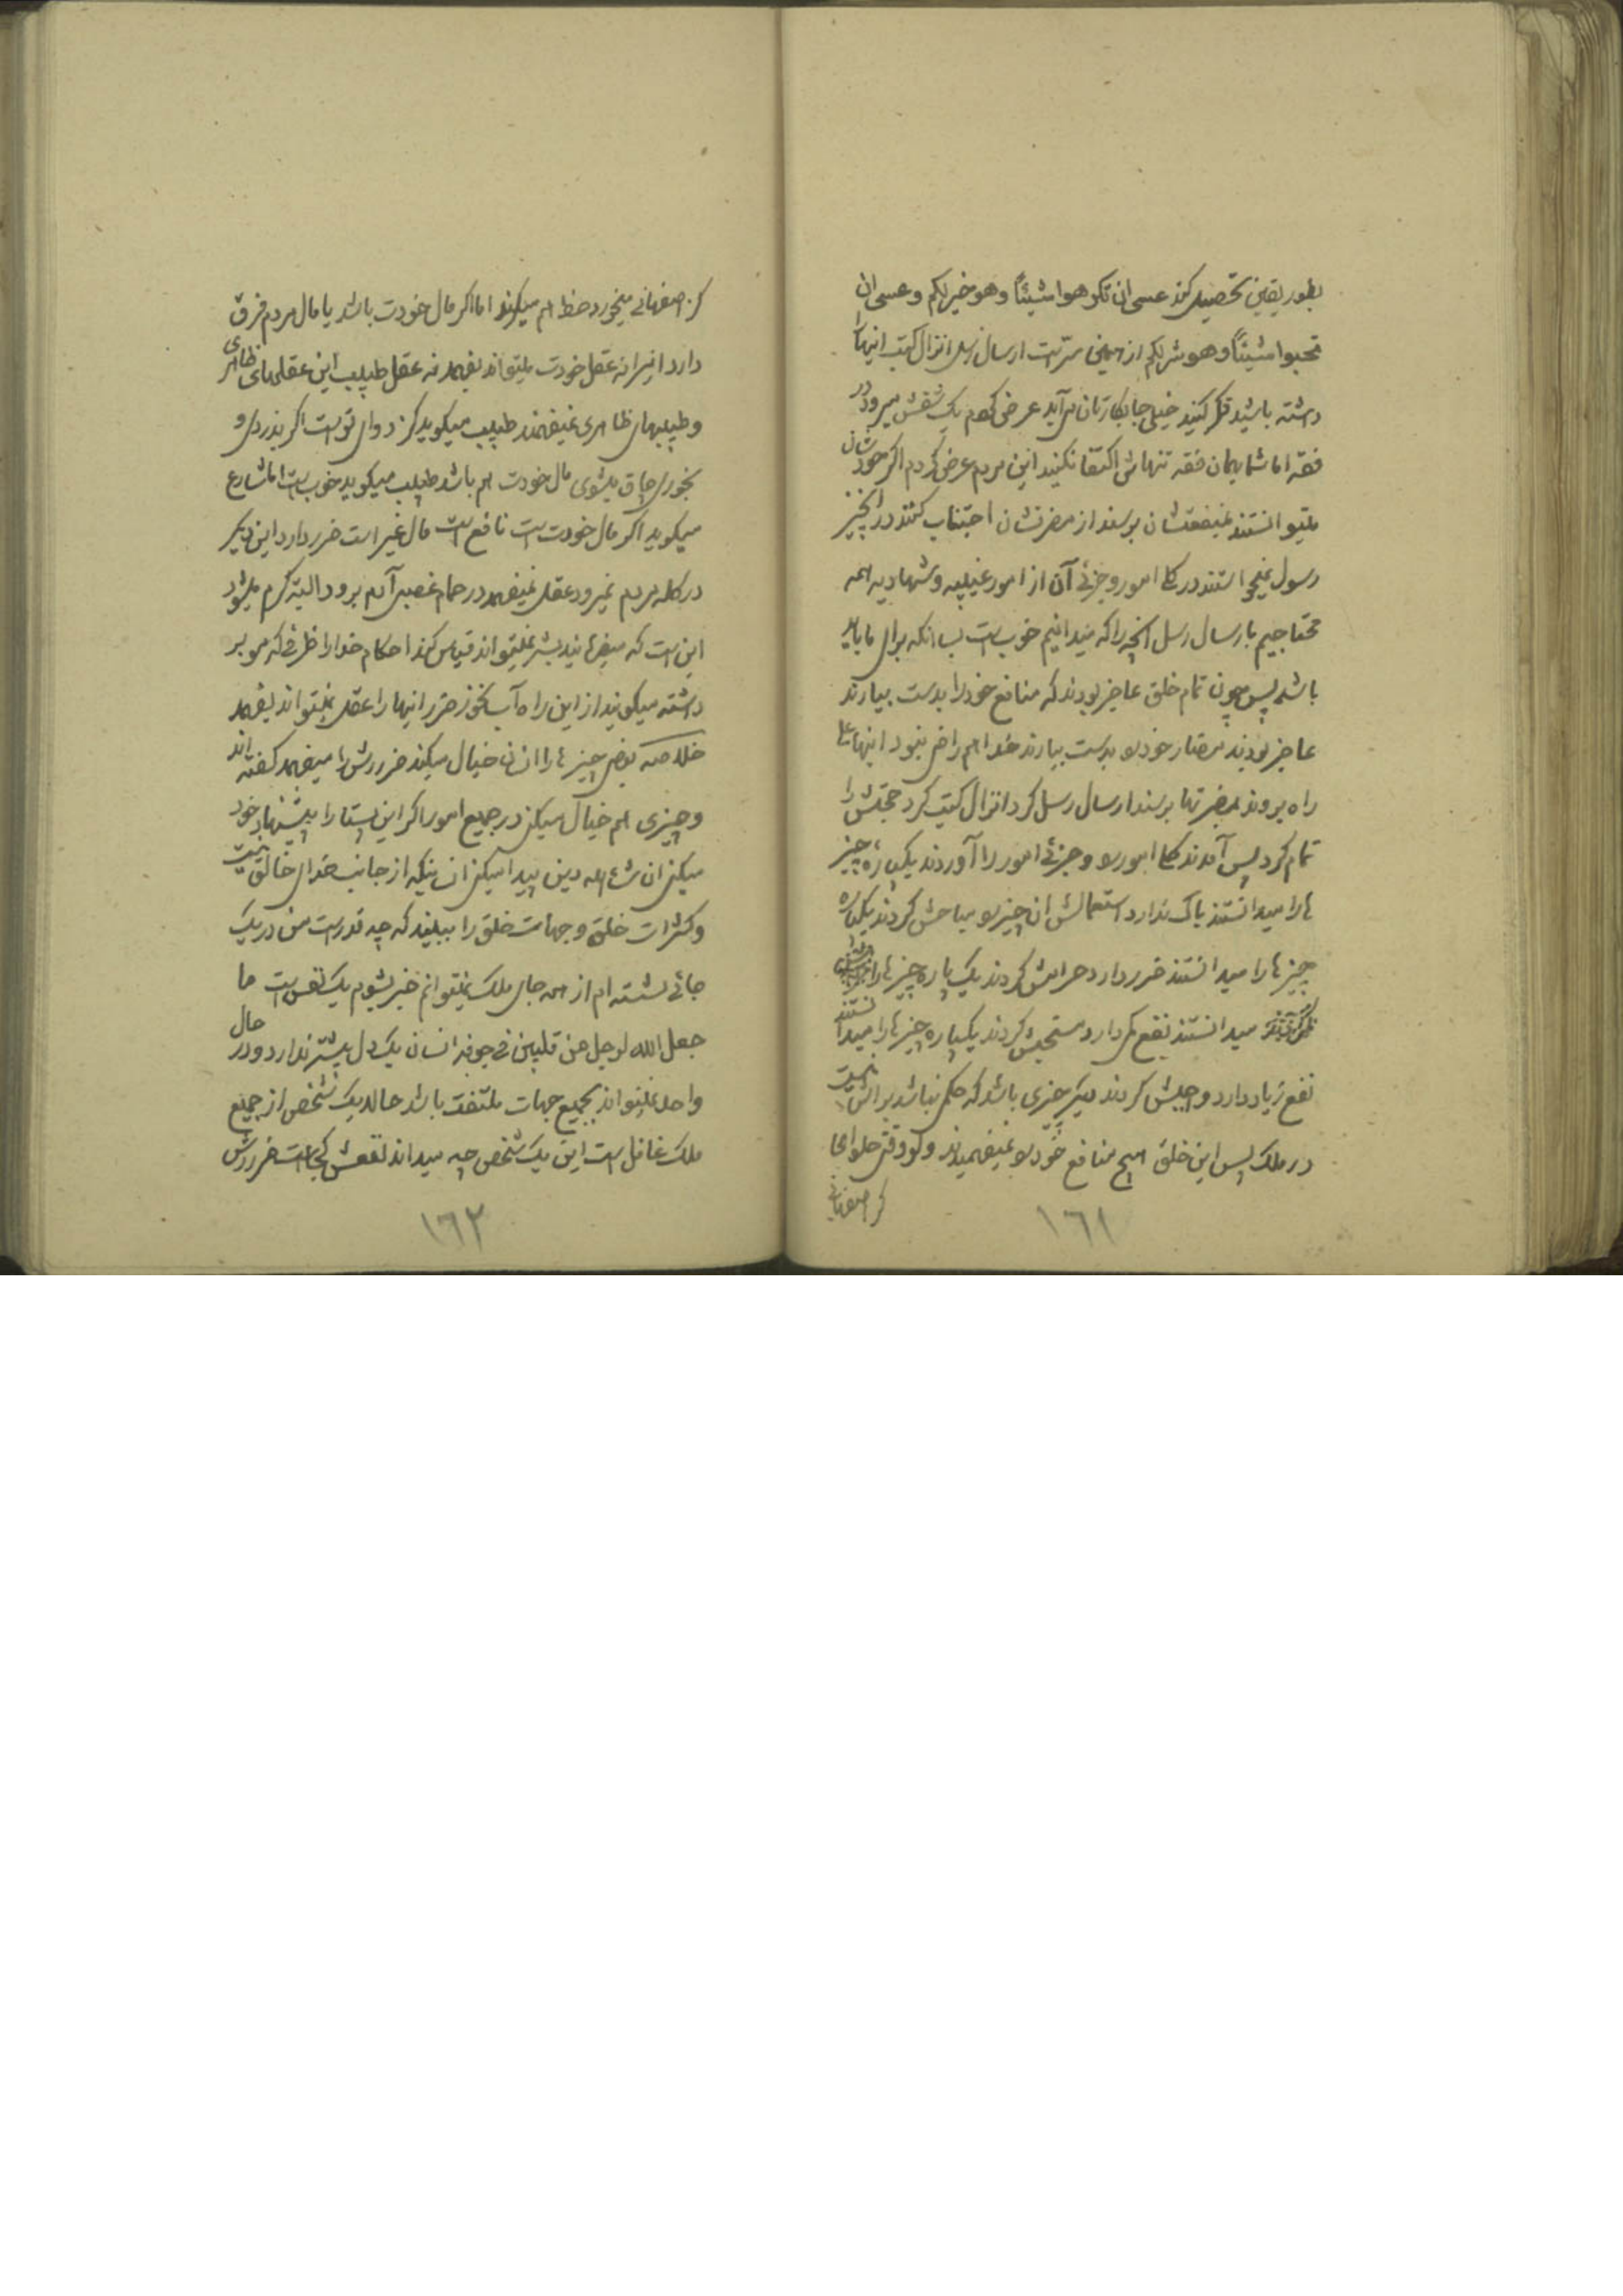 بطور یقین تحصیل کند عسی ان تکرهوا شیئاً و هو خیر لکم و عسی ان
تحبوا شیئاً و هو شر لکم از همین سرّ است ارسال رسل انزال کتب اینها را
داشته باشید فکر کنید خیلی جا بکارتان می‌آید عرض کردم یک شقش میرود در
فقه اما شما بهمان فقه تنهاش اکتفا نکنید این مردم عرض کردم اگر خودشان
میتوانستند بمنفعتشان برسند از مضرتشان اجتناب کنند در انچیز
رسول نمیخواستند در کلی امور و جزئی آن از امور غیبیه و شهادیه همه
محتاجیم بارسال رسل انچه را که میدانیم خوب است بسا انکه برای ما بد
باشد پس چون تمام خلق عاجز بودند که منافع خود را بدست بیارند
عاجز بودند مضار خود را بدست بیارند خدا هم راضی نبود اینها
راه بروند بمضرتها برسند ارسال رسل کرد انزال کتب کرد حجتش را
تمام کرد پس آمدند کلی امور را و جزئی امور را آوردند یکپاره چیز
ها را میدانستند باک ندارد استعمالش ان چیز را مباحش کردند یکپاره
چیزها را میدانستند ضرر دارد حرامش کردند یک پاره چیزها را
میدانستند نفع کمی دارد مستحبش کردند یکپاره چیزها را میدانستند
نفع زیاد دارد واجبش کردند دیگر چیزی باشد که حکمی نباشد براش نیست
در ملک پس این خلق هیچ منافع خود را نمیفهمیدند و گو وقتی حلوای
گز اصفهانی
١٦١
گز اصفهانی میخورد حظ هم میکند اما اگر مال خودت باشد یا مال مردم فرق
دارد اینرا نه عقل خودت میتواند بفهمد نه عقل طبیب این عقلهای ظاهری
و طبیبهای ظاهری نمیفهمند طبیب میگوید گز دوای تو است اگر بدزدی و
بخوری چاق میشوی مال خودت هم باشد طبیب میگوید خوب است اما شارع
میگوید اگر مال خودت است نافع است مال غیر است ضرر دارد این دیگر
در کله مردم نمیرود عقل نمیفهمد در حمام غصبی آدم برود البته گرم میشود
این است که میفرمایند بشر نمیتواند قیاس کند احکام خدا را ظرفی که مو بر
داشته میگویند از این راه آب نخور ضرر اینها را عقل نمیتواند بفهمد
خلاصه بعضی چیزها را انسان خیال میکند ضررش را میفهمد گفته‌اند
و چیزی هم خیال میکنی در جمیع امور اگر این بیست را پیشنهاد خود
میکنی ان شاء الله دین پیدا میکنی انسانیکه از جانب خدای خالق نیست
و کثرات خلق و جهات خلق را ببیند که چه قدر است من در یک
جائی نشسته‌ام از همه جای ملک نمیتوانم خبر بشوم یک نفس است ما
جعل الله لرجل من قلبین فی جوفه انسان یک دل بیشتر ندارد و در حال
واحد نمیتواند بجمیع جهات ملتفت باشد حالا یک شخص از جمیع
ملک غافل است این یک شخص چه میداند نفعش کجا است ضررش
١٦٢